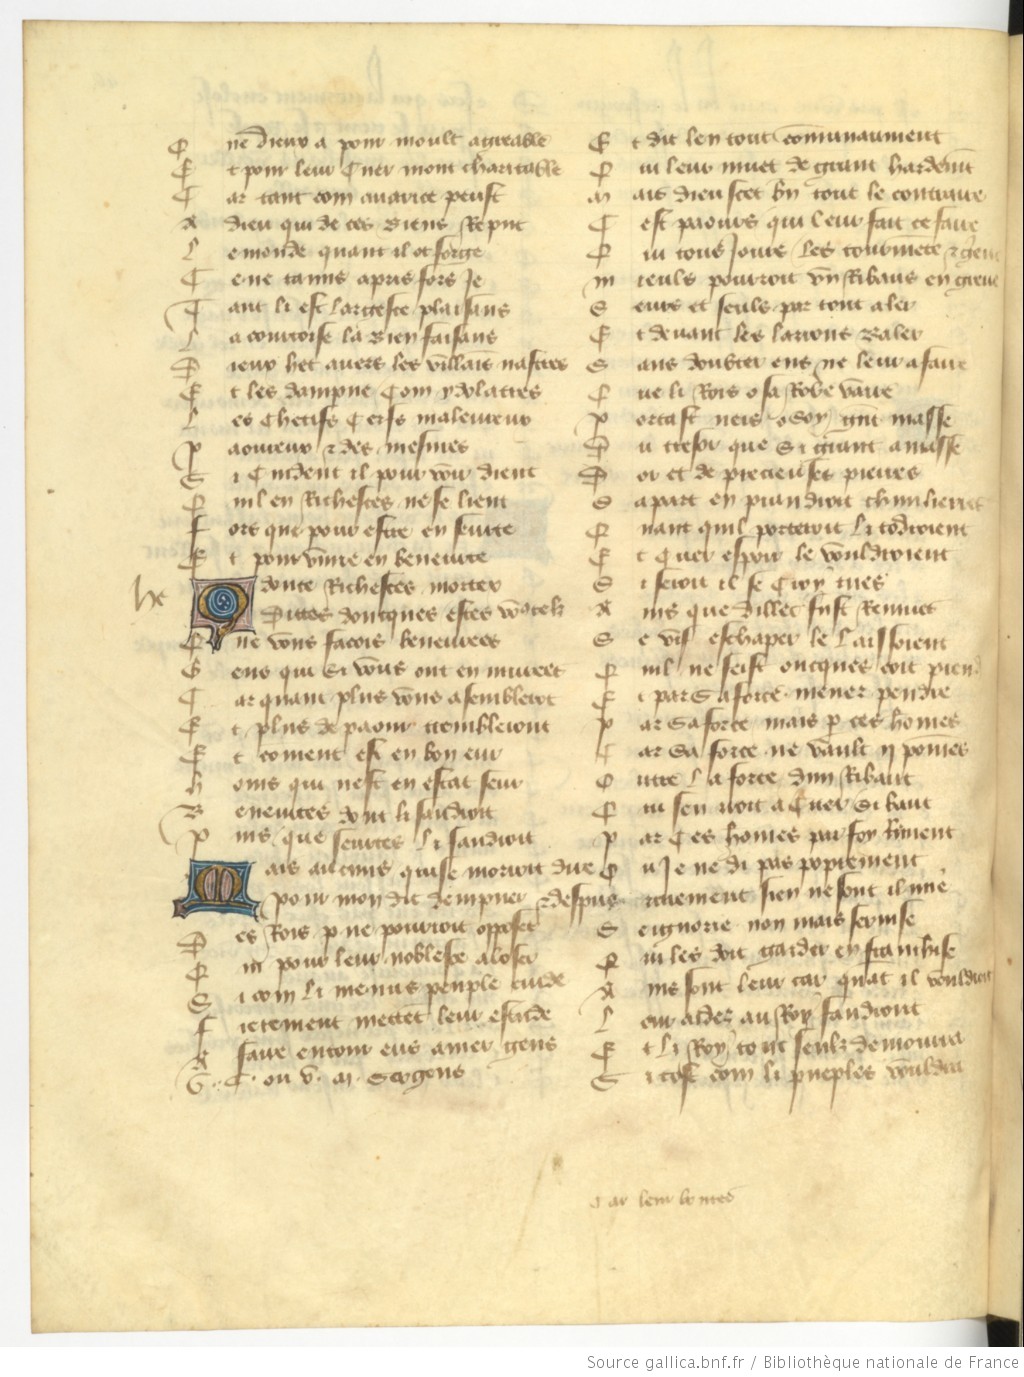 Q ne Dieux a pour moult agreable
E t pour leur Cuer mont charitable
C ar tant com avarice peust
A dieu qui de ces Biens Reput
L e monde quant il ot forge
C e ne tanns apris fors Je
T ant li est largesce plaisans
L a courtoise la Bien faisans
D ieux het avers les villais nastres
E t les dampne Com ydolastres
L es Chetifs Cerfs maleureux
P aoureux et des mesures
S i Cuident il pour voir dient
Q uil en Richesces ne se lient
F ors que pour estre en seurte
E t pour vivre en beneurte
he
Q doulce Richesces mortex
Dittes doncques estes voo telz
Q ue vous faciois beneurees
G ens qui Si vous ont en murees
C ar quant plus vous asembleront
E t plus de paour trembleront
E t coment est en bon eur
h oms qui nest en estat seur
B eneurtes dont li faudroit
P uis que seurtes li faudroit
M ais aucuns qui se moroit dire
pour mon dit dempner et despire
D es Rois p ne pourroit opposer
Q ui pour leur noblesce aloser
S i com li menus peuple cuide
F ierement mettet leur estude
A faire entour eus armer gens
V. C. ou v. M. Sergens
E t dit len tout communaument
Q ui leur muet de grant hardemt
M ais dieu scet bn tout le contraire
C est paours qui leur fait ce faire
Q ui tous Jours les tourmete et grieu
M ieuls pourroit vn Ribaus en greue
S eurs et seuls par tout aler
E t deuant les larrons Baler
S ans doubter eus ne leur afaire
Q ue li Rois o sa Robe vaire
P ortast neis o soy grnt masse
D u tresor que Si grant amasse
D or et de precieuses pierres
S a part en prandroit chm lierres
Q uant quil porteroit li todroient
E t Cuer espoir le vouldroient
S i seroit il se Croy tues
A ins que dillec fust Remues
S e vif eschaper le laissoient
Q uil ne feist oncques soit pien
E i par Sa force mener pendre
P ar Sa force mais p ces homes
C ar Sa force ne vault ij pomes
O utre la force dun Ribaut
Q ui sen iroit a Cuer Si baut
P ar Ces homes par foy Je ment
O u Je ne di pas proprement
uraement sien ne sont il mie
S eignorie non mais seruise
Q ui les doit garder en franchise
A ins sont leur car quat il vouldront
L eur aides au Roy faudront
E t li Roy tout seulz demourra
S i tost com li pueples vouldra
Car leur bontes
Source gallica.bnf.fr / Bibliothèque nationale de France